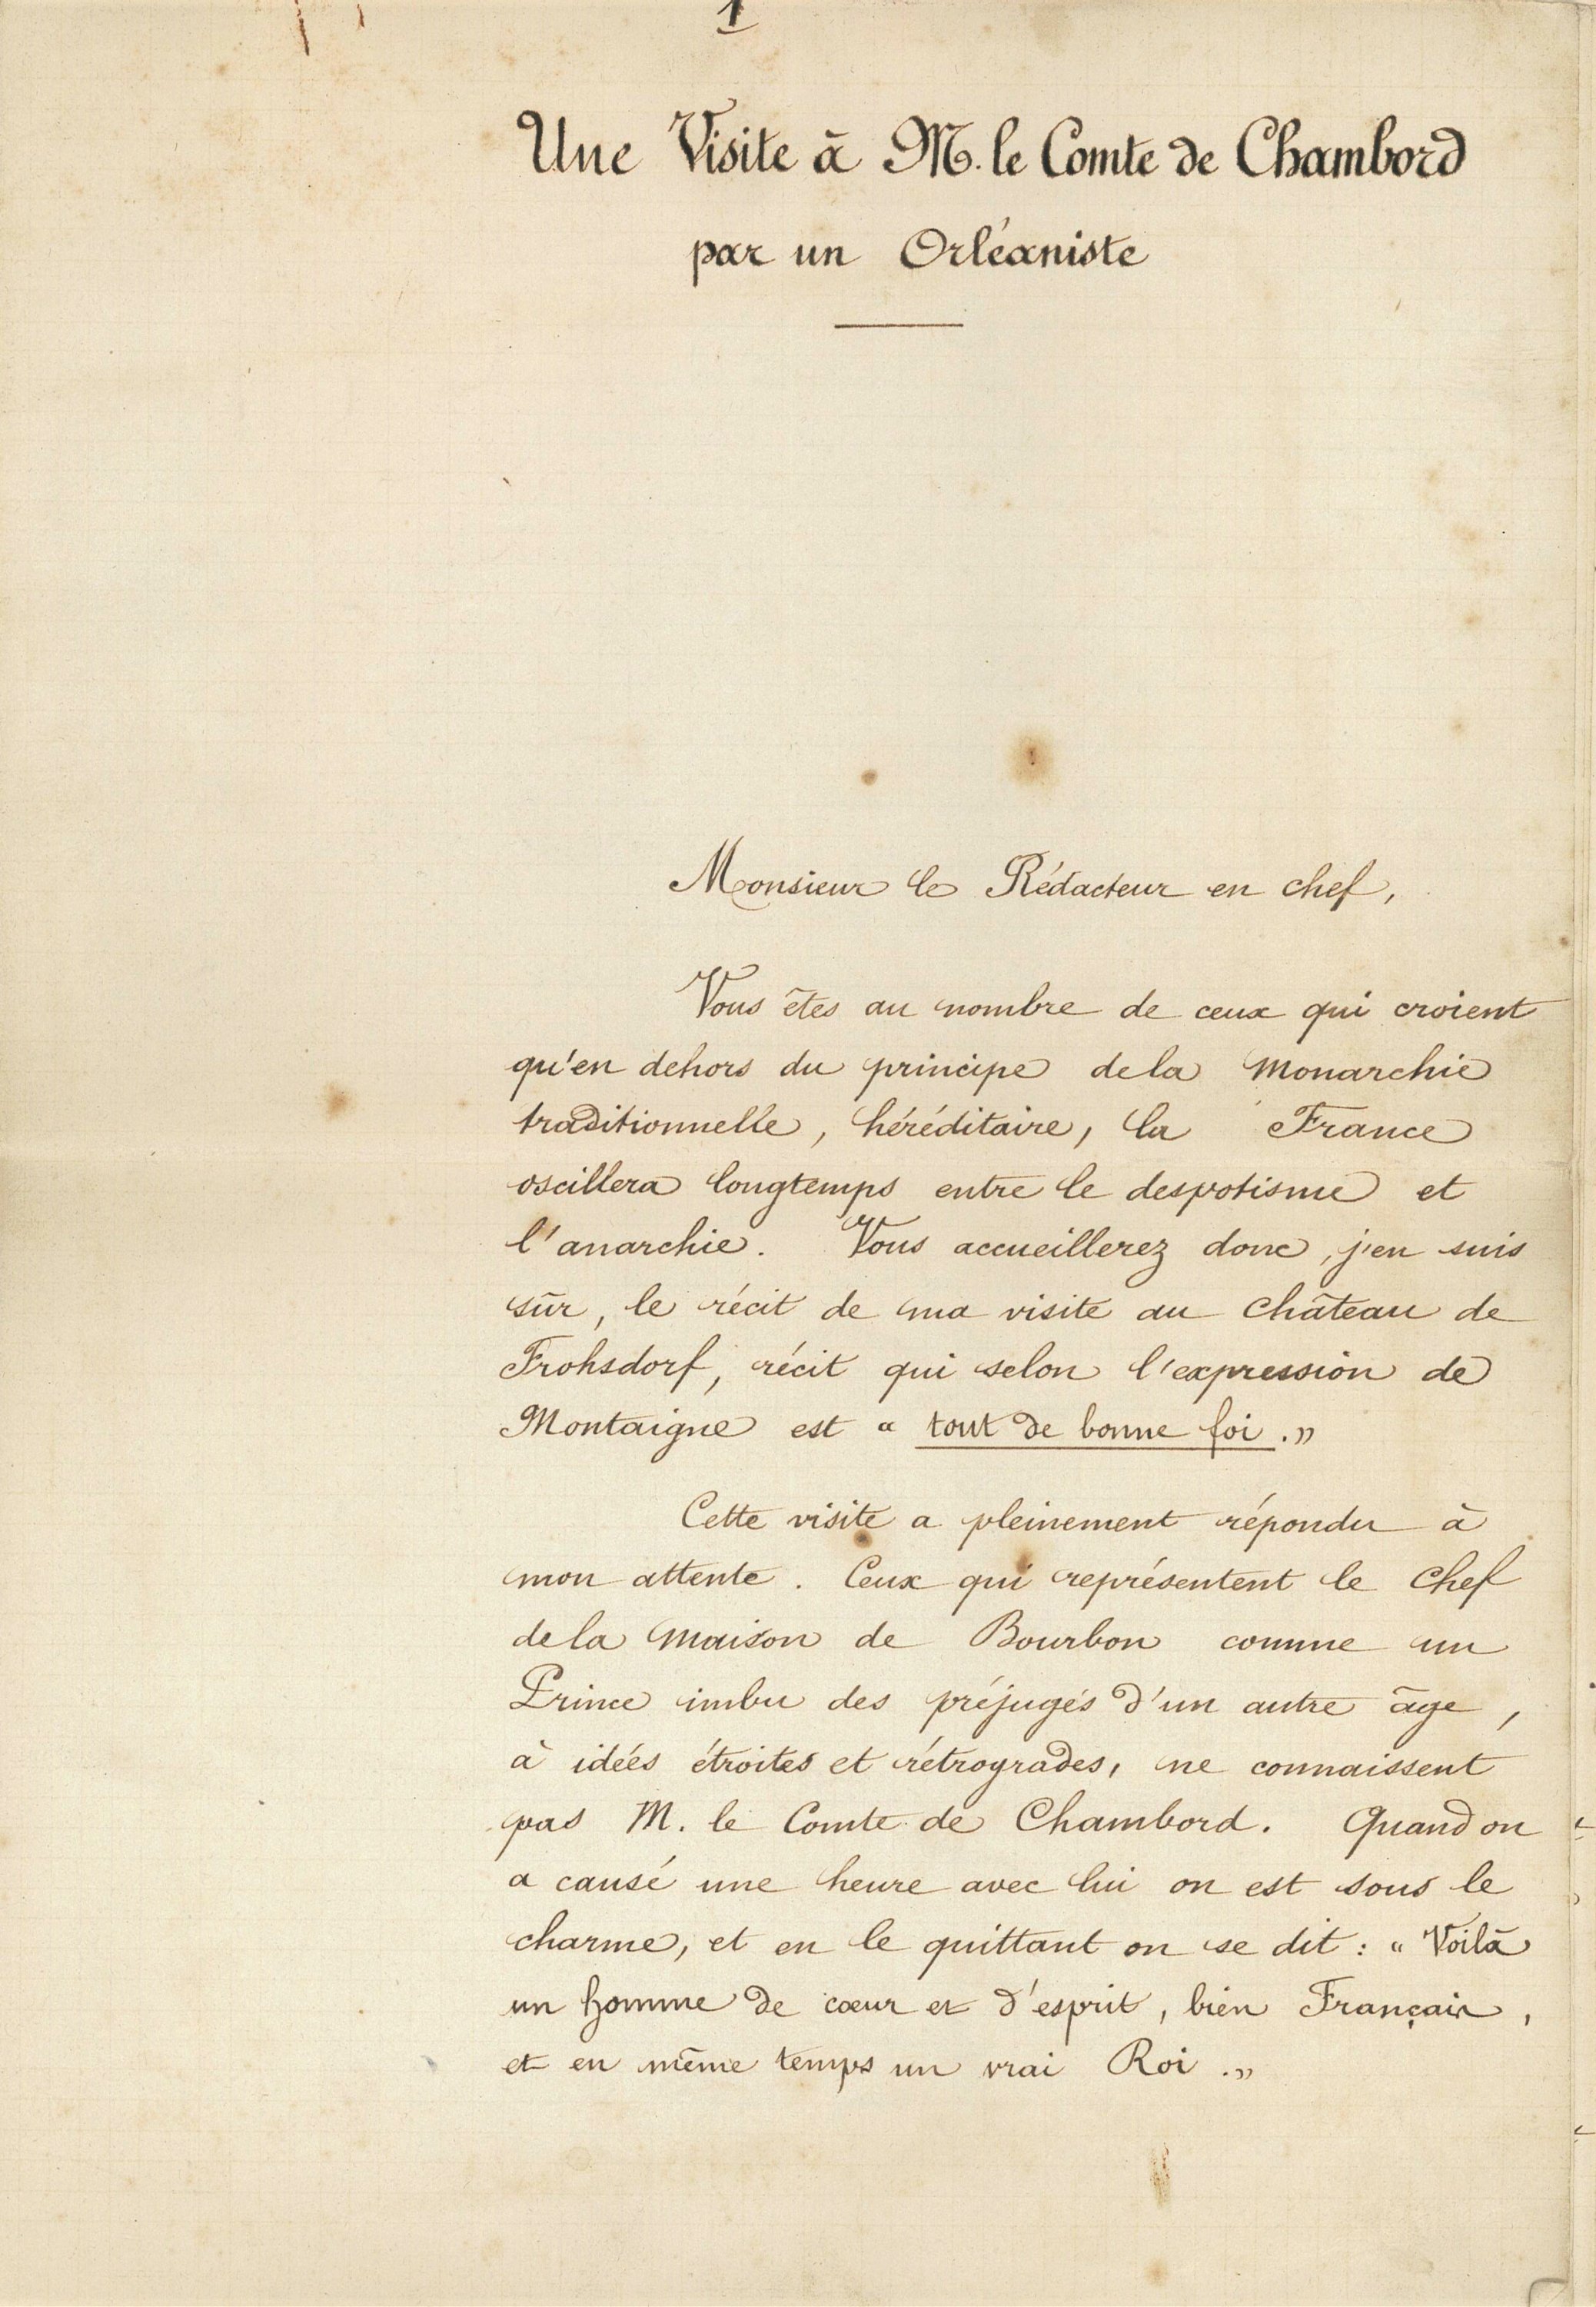 1
Une Visite à M. le Comte de Chambord
par un Orléaniste
Monsieur le Rédacteur en chef,
Vous êtes au nombre de ceux qui croient
qu'en dehors du principe dela Monarchie
traditionnelle, héréditaire, la France
oscillera longtemps entre le despotisme et
l'anarchie. Vous accueillerez donc, j'en suis
sûr, le récit de ma visite au Château de
Frohsdorf, récit qui selon l'expression de
Montaigne est « tout de bonne foi. »
Cette visite a pleinement répondu à
mon attente. Ceux qui représentent le Chef
dela Maison de Bourbon comme un
Prince imbu des préjugés d'un autre âge,
à idées étroites et rétrogrades, ne connaissent
pas M. le Comte de Chambord. Quand on
a causé une heure avec lui on est sous le
charme, et en le quittant on se dit : « Voilà
un homme de cœur et d'esprit, bien Français,
et en même temps un vrai Roi. »